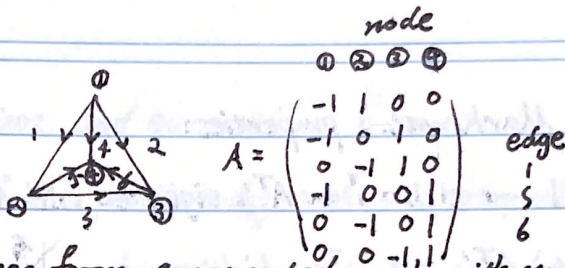 node
① ② ③ ④
①
1 2
4
5 ④ 6
② 3 ③
A =
-1 1 0 0
-1 0 1 0
0 -1 1 0
-1 0 0 1
0 -1 0 1
0, 0 -1, 1
edge
1
5
6